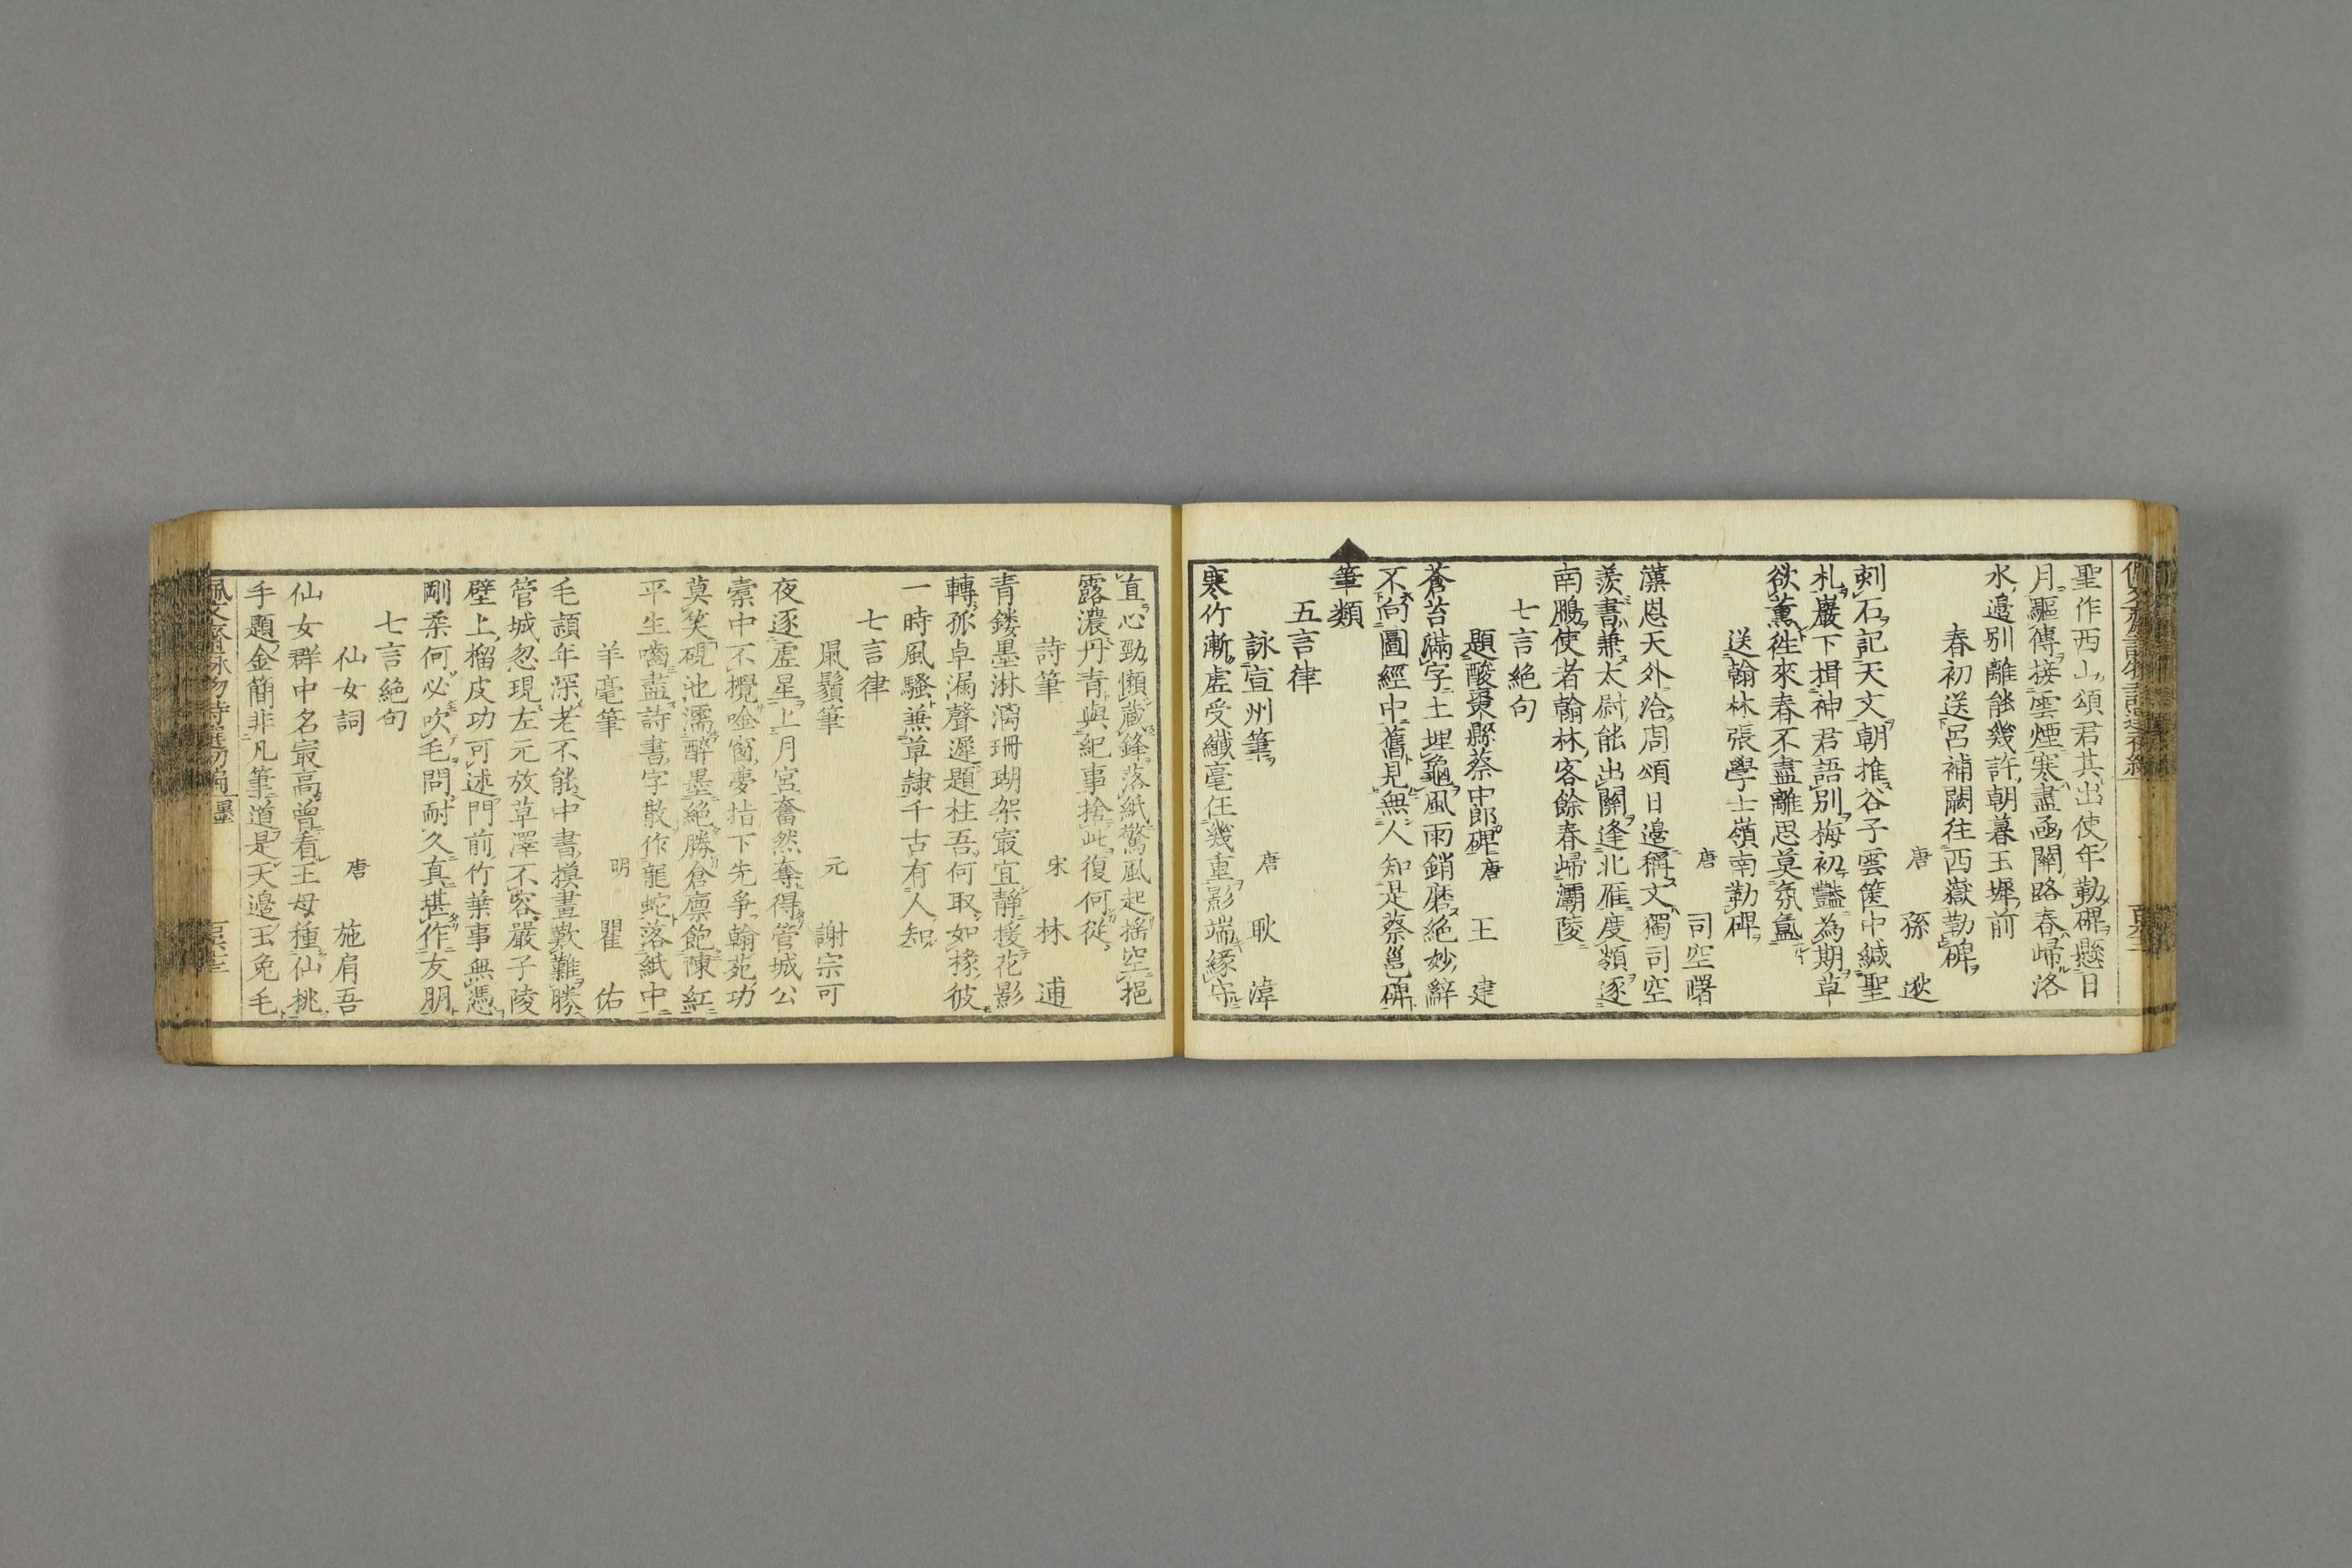 聖作西山頌君其出使年勒碑懸日
月驅傳接雲煙寒盡函關路春歸洛
水邊別離能幾許朝暮玉墀前
春初送呂補闕往西嶽勒碑
唐 孫逖
刻石記天文朝推谷子雲篋中緘聖
札巖下揖神君語別梅初豔為期草
欲薰往來春不盡離思莫氛氳
送翰林張學士嶺南勒碑
唐 司空曙
漢恩天外洽周頌日邊稱文獨司空
羨書兼太尉能出關逢北雁度嶺逐
南鵬使者翰林客餘春歸灞陵
七言絕句
題酸棗縣蔡中郎碑 唐 王建
蒼苔滿字土埋龜風雨銷磨絕妙辭
不向圖經中舊見無人知是蔡邕碑
筆類
五言律
詠宣州筆 唐 耿湋
寒竹漸虛受纖毫任幾重影端緣守
直心勁懶藏鋒落紙驚風起搖空挹
露濃丹青與紀事捨此復何從
詩筆 宋 林逋
青鏤墨淋漓珊瑚架寂宜靜援花影
轉孤卓漏聲遲題柱吾何取如椽彼
一時風騷兼草隸千古有人知
七言律
鼠鬚筆 元 謝宗可
夜逐虛星上月宮奮然奪得管城公
橐中不攪唫窗夢指下先爭翰苑功
莫笑硯池濡醉墨絕勝倉廩飽陳紅
平生嚙盡詩書字散作龍蛇落紙中
羊毫筆 明 瞿佑
毛穎年深老不能中書摸畫歎難勝
管城忽現左元放草澤不容嚴子陵
壁上榴皮功可述門前竹葉事無憑
剛柔何必吹毛問耐久真堪作友朋
七言絕句
仙女詞 唐 施肩吾
仙女群中名最高曾看王母種仙桃
手題金簡非凡筆道是天邊玉兔毛
佩文齋詠物詩選初編 墨